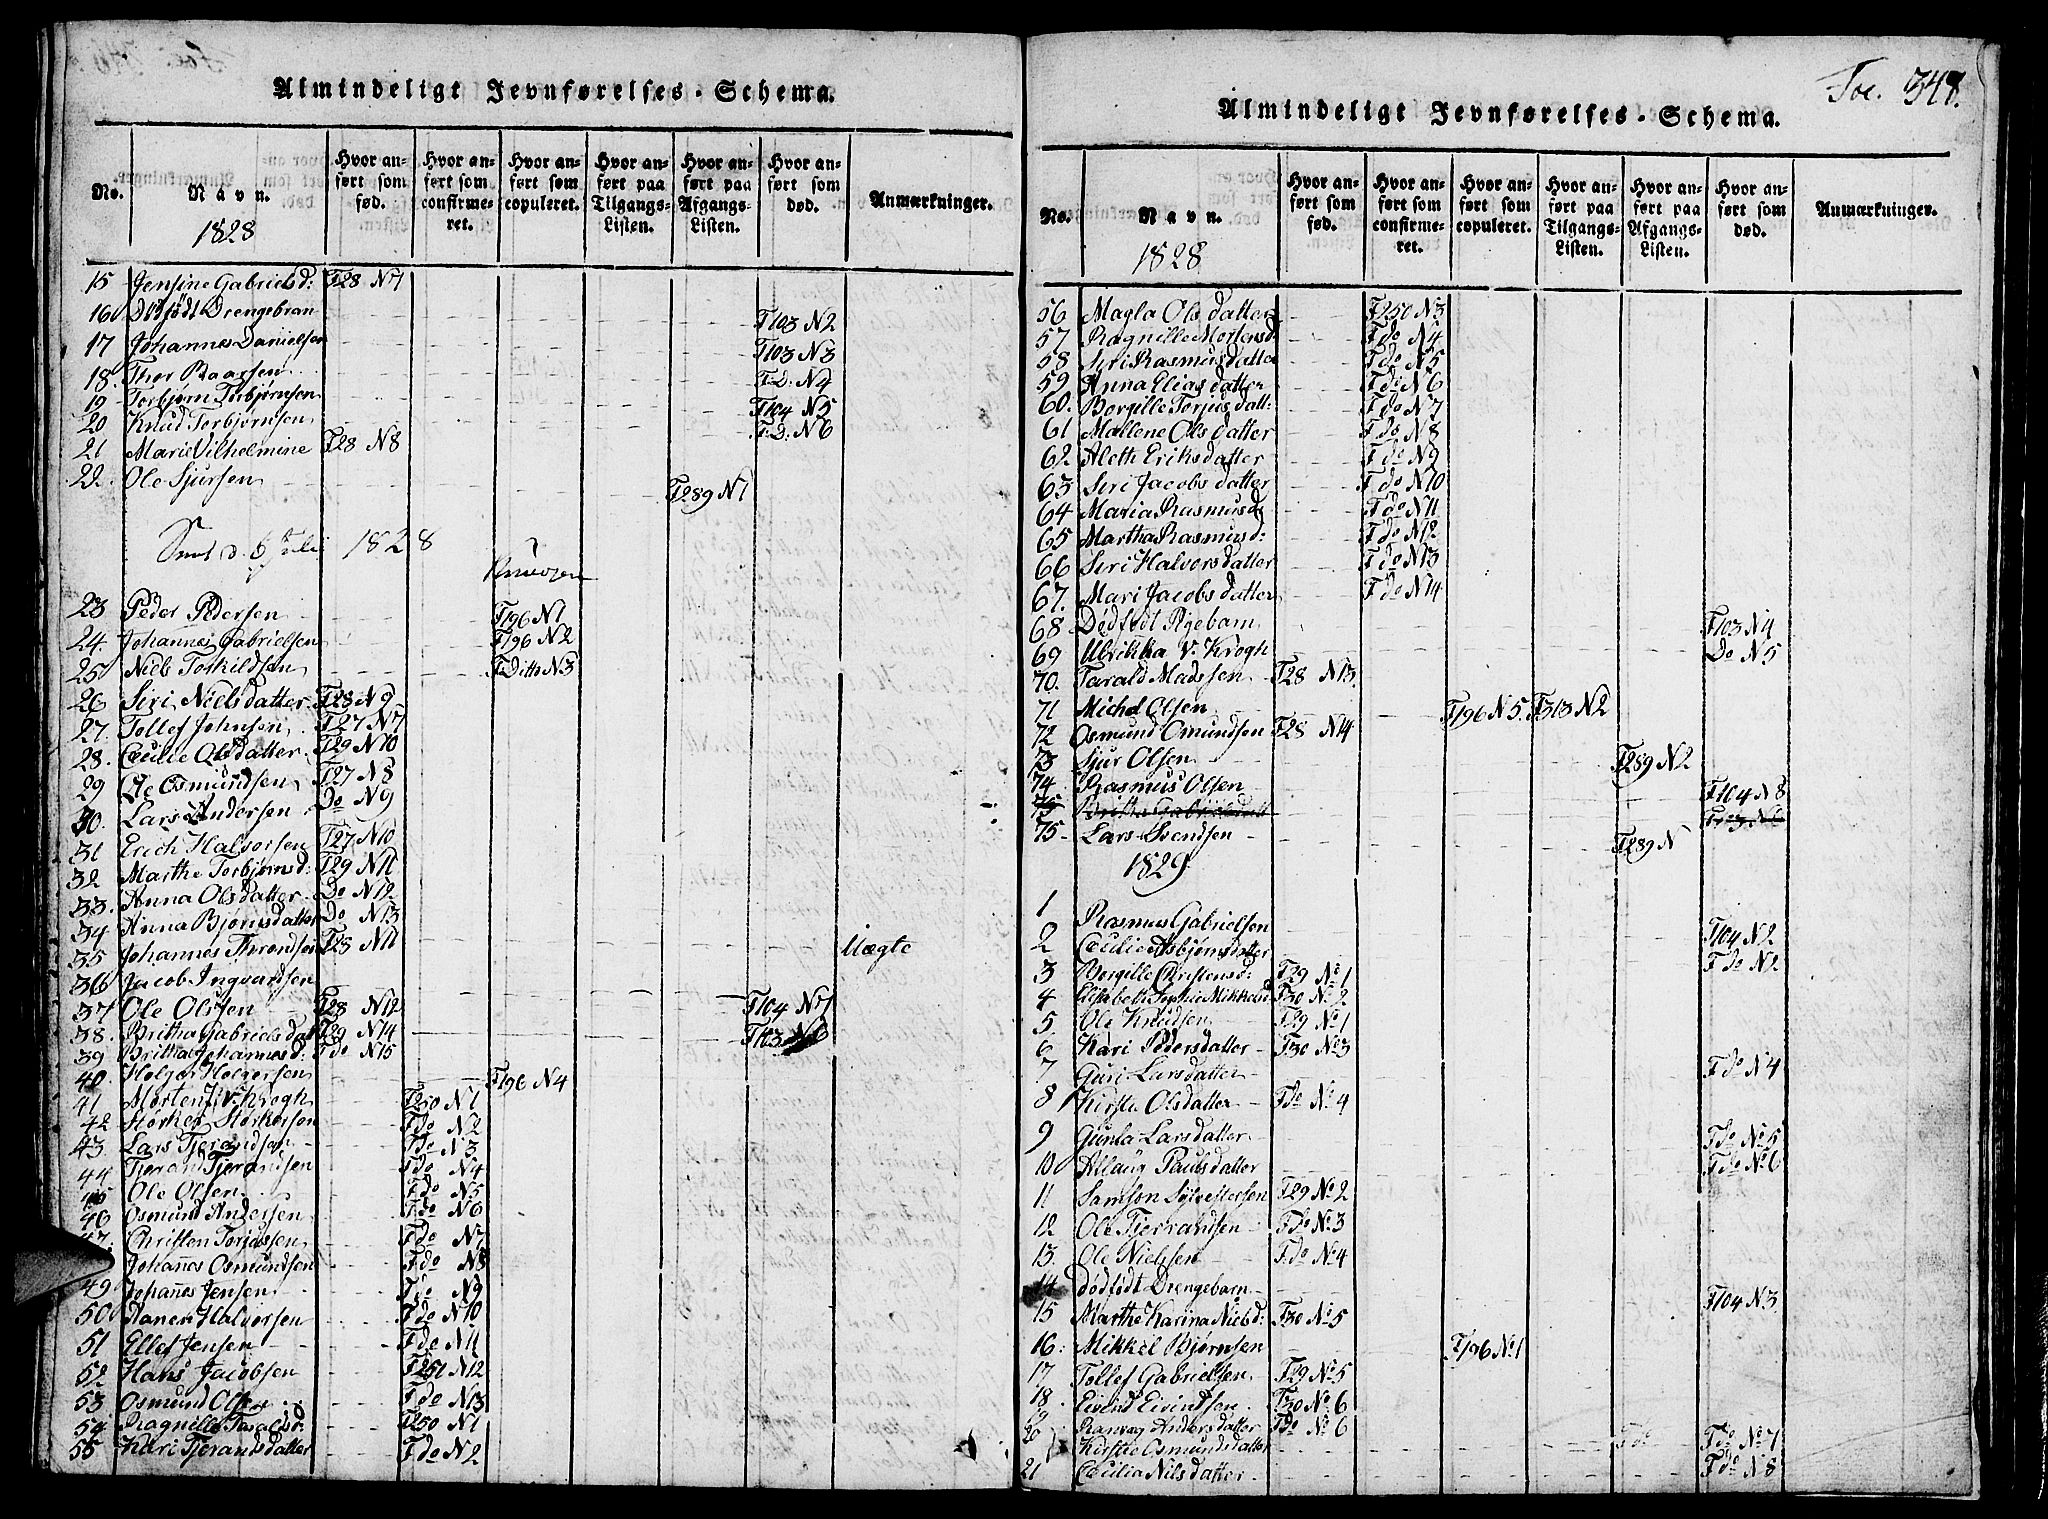 Almindeligt Jevnførelses-Schema.
No. Navn. Hvor anført som fød. Hvor anført som confirmeret. Hvor anført som copuleret. Hvor anført paa Tilgangs-Listen. Hvor anført paa Afgangs-Listen. Hvor anført som død. Anmærkninger.
1828
15 Jensine Gabrielsd: F28 N7
16 Dødfødt Drengebarn F103 N2
17 Johannes Danielsen F103 N3
18. Thor Baarsen F.D. N4
19 Torbjørn Torbjørnsen F104 N5
20 Knud Torbjørnsen F.D. N6
21 Marie Vilhelmine F28 N8
22. Ole Sjursen F289 N1
d. 6 Juli 1828
23 Peder Pedersen F196 N1
24. Johannes Gabrielsen F196 N2
25 Niels Torkildsen F Ditto N3
26 Siri Nielsdatter F28 N9
27. Tollef Johnsen F27 N7
28. Cecilie Olsdatter F29 N10
29 Ole Osmundsen F27 N8
30. Lars Andersen Do N9
31 Erich Halvorsen F27 N10
32 Marthe Torbjørnsd: F29 N11
33. Anna Olsdatter Do N12
34 Anna Bjørnsdatter Do N13
35 Johannes Throndsen F28 N11
36 Jacob Ingvardsen Uægte
37 Ole Olsen F28 N12 F104 N7
38. Britha Gabrielsdatt F29 N14 F103 N6
39 Britha Johannesd: F do N15
40. Holger Holgersen F196 N4
41 Morten v. Krogh F250 N1
42 Størker Størkersen F do N2
43 Lars Tjerandsen F do N3
44 Tjeran Tjerandsen F do N4
45 Ole Olsen F do N5
46 Osmund Andersen F do N6
47. Christen Torjussen F do N7
Johannes Osmundsen F do N8
49 Johannes Jensen F do N9
50 Raner Halvorsen F do N10
51 Ellef Jensen F do N11
52 Hans Jacobsen F251 N12
53 Osmund Olsen F do N13
54 Ragnille Taraldsd. F250 N1
55 Kari Tjerandsdatter F do N2
Fol. 347.
Almindeligt Jevnførelses-Schema.
No. Navn. Hvor anført som fød. Hvor anført som confirmeret. Hvor anført som copuleret. Hvor anført paa Tilgangs-Listen. Hvor anført paa Afgangs-Listen. Hvor anført som død. Anmærkninger.
1828
56 Magla Olsdatter F250 N3
57 Ragnille Mortensd F do N4
58 Siri Rasmusdatter F do N5
59 Anna Eliasdatter F do N6
60. Borgille Torjusdatt: F do N7
61 Mallene Olsdatter F do N8
62 Aleth Eriksdatter F do N9
63 Siri Jacobsdatter F do N10
64 Maria Rasmusd F do N11
65 Martha Rasmusd: F do N12
66 Siri Halvorsdatter F do N13
67. Mari Jacobsdatter F do N14
68 Dødfødt Pigebarn F103 N4
69 Ulrikka v. Krogh Do N5
70. Tarald Madssen F28 N13
71 Michel Olsen F196 N5. F313 N2
72 Osmund Omundsen F28 N14
73 Sjur Olsen F289 N2
74. Rasmus Olsen F104 N8
75 Britha Gabrielsdatt F103 N6
75 Lars Svendsen F289 N
1829
1 Rasmus Gabrielsen F104 N2
2 Cecilie Asbjørnsdatter F do N2
3 Borgille Christensd: F29 No 1
4 Elisabeth Sophie Mikkelsd F30 No 2
5 Ole Knudsen F29 No 1
6 Kari Pedersdatter F30 No 3
7 Guri Larsdatter F do N4
8 Kirsti Olsdatter F do No 4
9 Gunla Larsdatter F do No 5
10 Allaug Paulsdatter F do No 6
11 Samson Sylvestersen F29 No 2
12 Ole Tjerandsen F do No 3
13. Ole Nielsen F. do No 4
14 dødfødt Drengebarn F104 N3
15 Marthe Karina Nielsd: F30 No 5
16. Mikkel Bjørnsen F196 No 1
17 Tollef Gabrielsen F29 No 5
18. Eivind Eivindsen F30 No 6
19 Ranvey Andersdatter F do No 6
20 Kirstie Osmundsdatter F do No 7
21 Cecilia Nilsdatter F do N 8